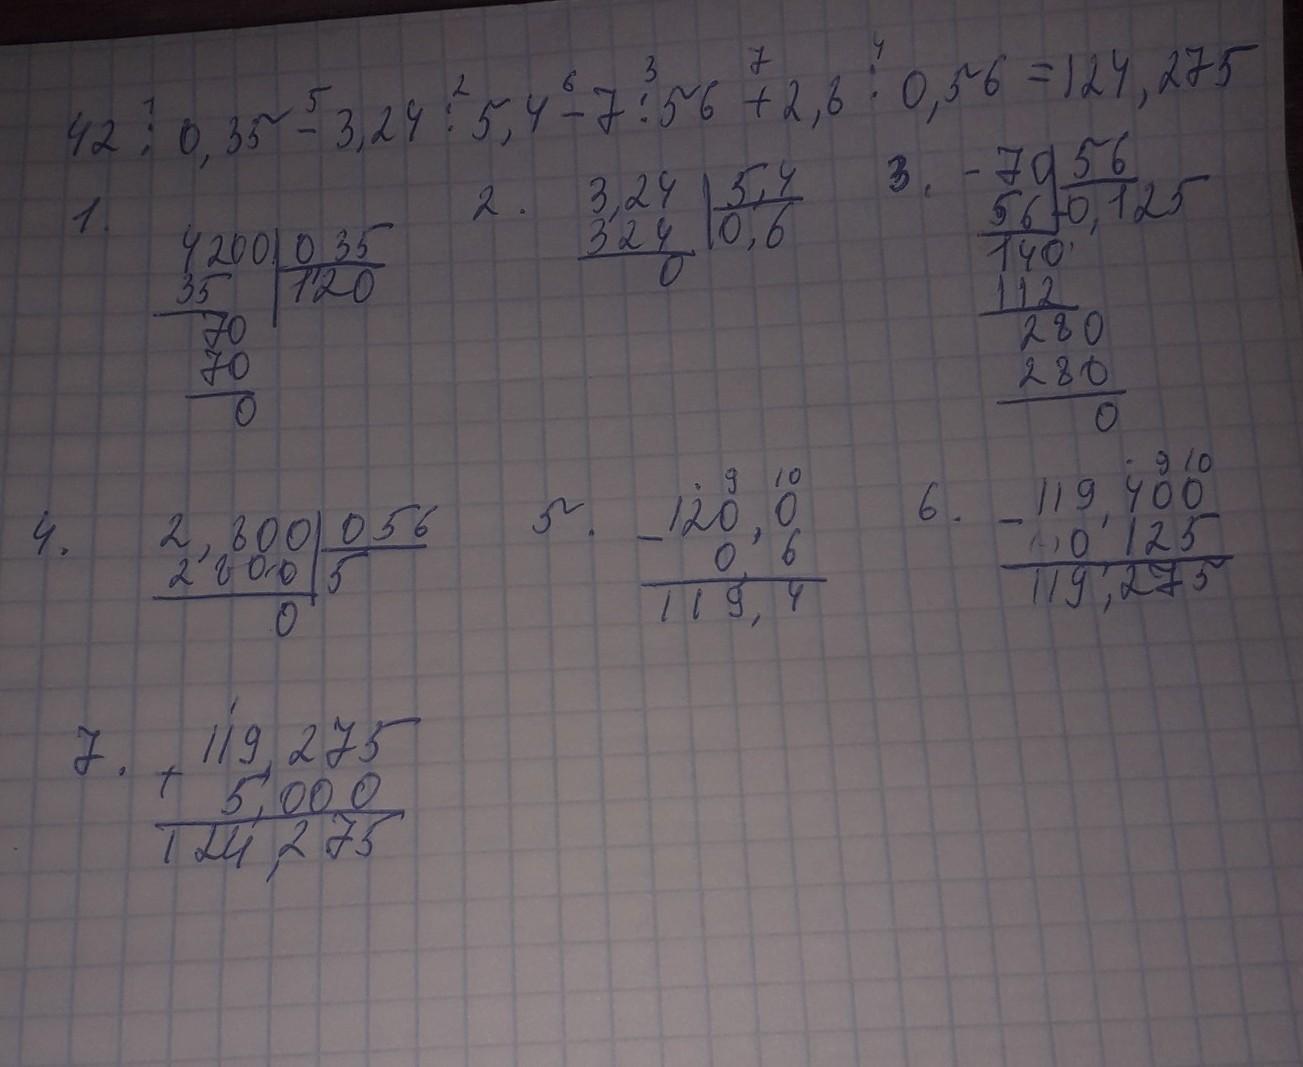 42 : 0,35 - 3,24 : 5,4 - 7 : 56 + 2,8 : 0,56 = 124,275
1 5 2 6 3 7 4
1. 2. 3.
4200 0,35
35 120
70
70
0
3,24 5,4
324 0,6
0
- 70 56
56 0,125
140
112
280
280
0
4. 5. 6.
2,800 056
2800 5
0
9 10
- 120,0
0,6
119,4
9 10
- 119,400
0 125
119,275
7.
1
+ 119,275
5,000
124,275